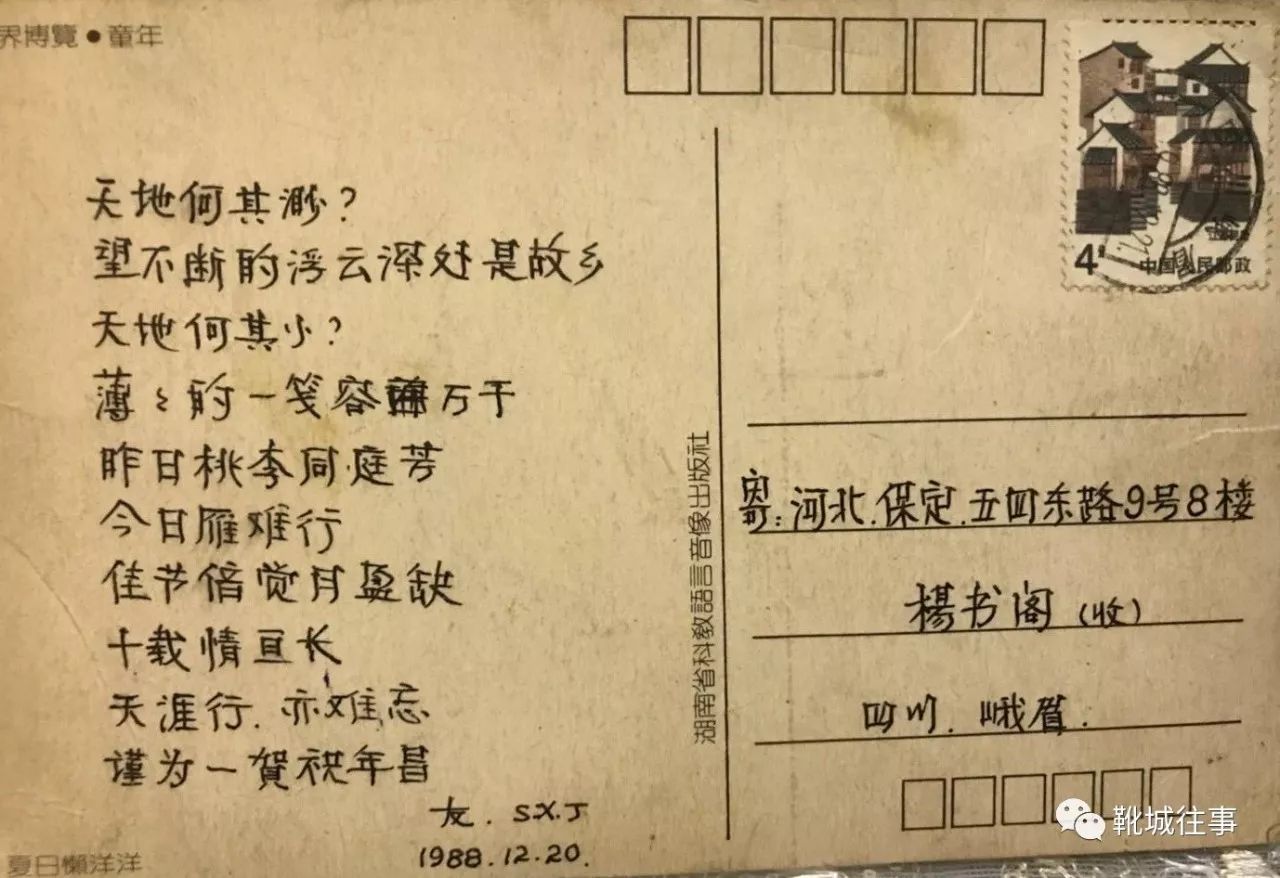 界博覽●童年
天地何其渺？
望不断的浮云深处是故乡
天地何其小？
薄々的一笺容 万千
昨日桃李同庭芳
今日雁难行
佳节倍觉月盈缺
十载情亘长
天涯行.亦难忘
谨为一賀祝年昌
友.SXJ
1988.12.20.
夏日懒洋洋
湖南省科教語言音像出版社
4分
中国人民邮政
27
寄:河北.保定.五四东路9号8楼
楊书阁(收)
四川.峨眉.
靴城往事